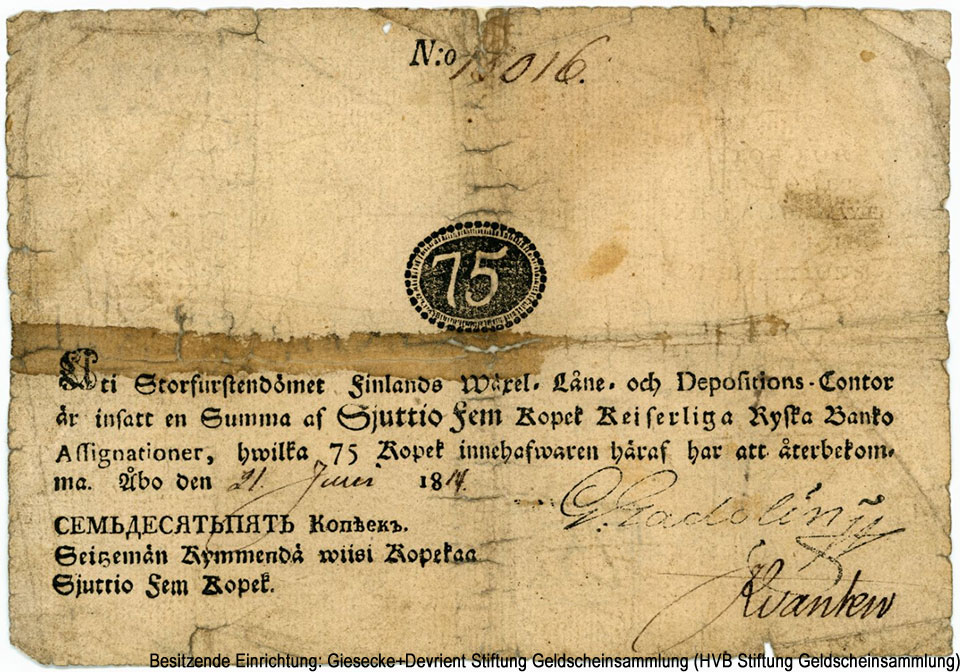 N:o 15016.
75
Uti Storfurstendömet Finlands Wäxel- Låne- och Depositions-Contor
är insatt en Summa af Sjuttio Fem Kopek Keiserliga Ryska Banko
Assignationer, hwilka 75 Kopek innehafwaren häraf har att återbekom-
ma. Åbo den 21. Juni 1814.
G. Gadolin
СЕМЬДЕСЯТЬПЯТЬ Копѣекъ.
Seitzemän Kymmendä wiisi Kopekaa
Sjuttio Fem Kopek.
Besitzende Einrichtung: Giesecke+Devrient Stiftung Geldscheinsammlung (HVB Stiftung Geldscheinsammlung)